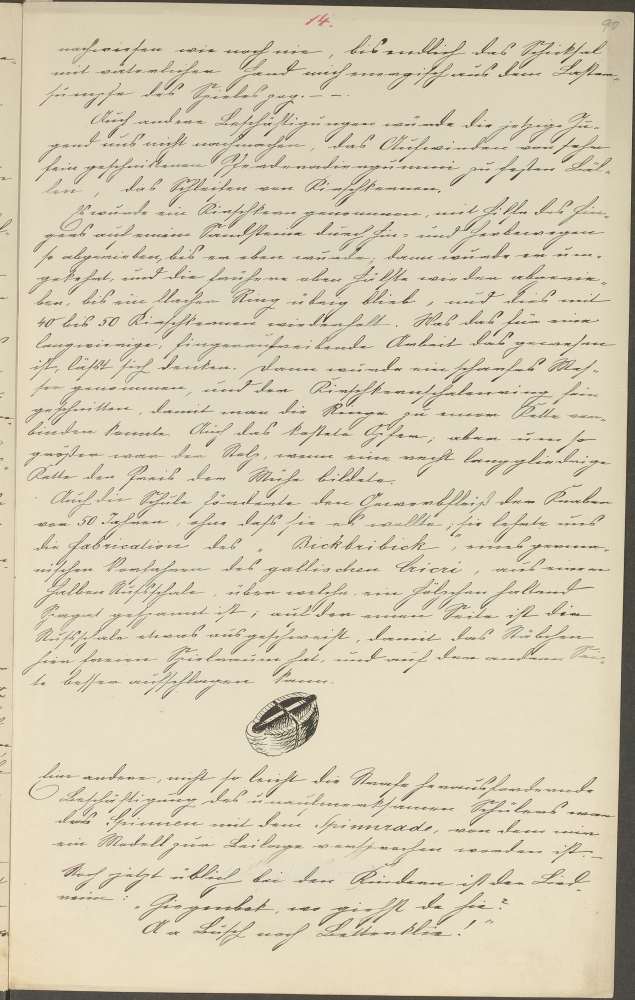 14.
90
nachweisen wie noch nie, bis endlich das Schicksal
mit väterlicher Hand mich energisch aus dem Laster-
sumpfe des Spieles zog. – –
Auch andere Beschäftigungen würde die jetzige Ju-
gend uns nicht nachmachen, das Aufwinden von sehr
fein geschnittenen zu festen Bäl-
len, das Schleifen von Kirschkernen.
Es wurde ein Kirschkern genommen, mit Hilfe des Fin-
gers auf einem Sandsteine durch Hin- und Herbewegen
so abgerieben, bis er eben wurde, dann wurde er um-
gekehrt, und die frühere obere Hälfte wieder abgerie-
ben, bis ein flacher Ring übrig blieb, und dies mit
40 bis 50 Kirschkernen wiederholt. Was das für eine
langwierige, fingeraufreibende Arbeit das gewesen
ist, läßt sich denken. Dann wurde ein scharfes Mes-
ser genommen, und der Kirschkernschalenring fein
geschnitten, damit man die Ringe zu einer Kette ver-
binden konnte. Auch das kostete Opfer; aber um so
größer war der Stolz, wenn eine recht langgliedrige
Kette den Preis der Mühe bildete.
Auch die Schule förderte den Gewerbfleiß der Knaben
vor 50 Jahren, ohne daß sie es wollte; sie lehrte uns
die Fabrication des „Bickbribick“, eines germa-
nischen Vorfahren des gallischen Cricri, aus einer
halben Nußschale, über welche ein Hölzchen haltend
Spagat gespannt ist; auf der einen Seite ist die
Nußschale etwas ausgeschweift, damit das Stäbchen
hier freien Spielraum hat, und auf der anderen Sei-
te besser aufschlagen kann.
Eine andere, nicht so leicht die Strafe herausfordernde
Beschäftigung des unaufmerksamen Schülers war
das Spinnen mit dem Spinnrade, von dem mir
ein Modell zur Beilage versprochen worden ist. –
Noch jetzt üblich bei den Kindern ist der Lied-
reim: „Giegenbok, wo giehst de hie?
A a Busch noch Betterklie!“